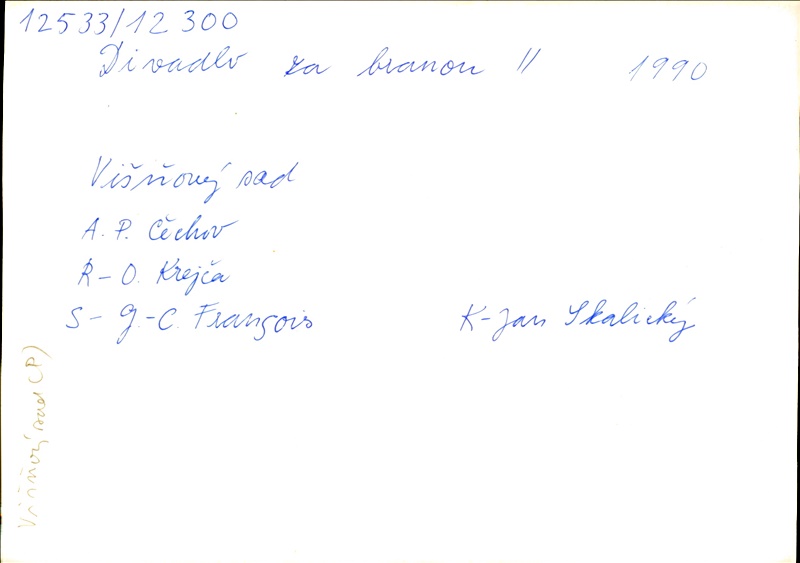 12533/12 300
Divadlo za branou II 1990
Višňový sad
A. P. Čechov
R - O. Krejča
S - G.-C. François K - Jan Skalický
Višňový sad (P)